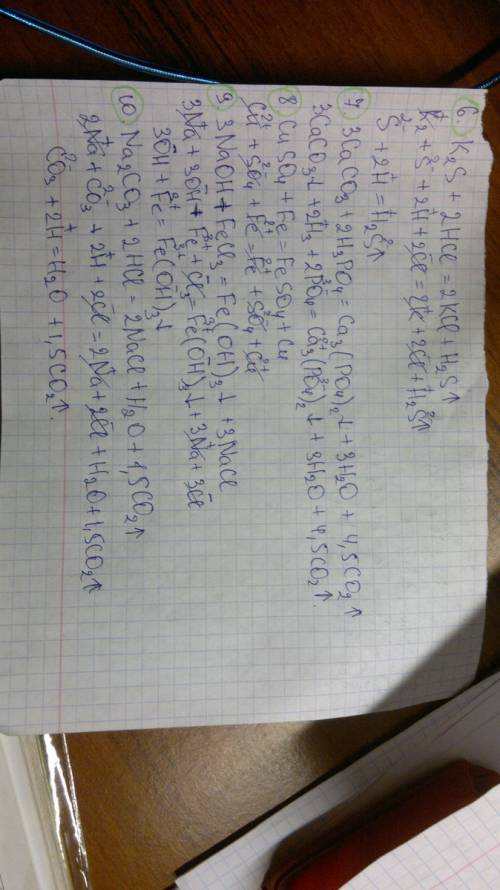 6. K₂S + 2HCl = 2KCl + H₂S↑
K⁺₂ + S²⁻ + 2H⁺ + 2Cl⁻ = 2K⁺ + 2Cl⁻ + H₂S↑
S²⁻ + 2H⁺ = H₂S↑
7. 3CaCO₃ + 2H₃PO₄ = Ca₃(PO₄)₂↓ + 3H₂O + 4,5CO₂↑
3CaCO₃↓ + 2H⁺₃ + 2PO₄³⁻ = Ca₃(PO₄)₂↓ + 3H₂O + 4,5CO₂↑
8 CuSO₄ + Fe = FeSO₄ + Cu
Cu²⁺ + SO₄²⁻ + Fe²⁺ = Fe²⁺ + SO₄²⁻ + Cu²⁺
9. 3NaOH + FeCl₃ = Fe(OH)₃↓ + 3NaCl
3Na⁺ + 3OH⁻ + Fe³⁺ + Cl⁻₃ = Fe³⁺(OH⁻)₃↓ + 3Na⁺ + 3Cl⁻
3OH⁻ + Fe³⁺ = Fe(OH)₃↓
10. Na₂CO₃ + 2HCl = 2NaCl + H₂O + 1,5CO₂↑
2Na⁺ + CO₃²⁻ + 2H⁺ + 2Cl⁻ = 2Na⁺ + 2Cl⁻ + H₂O + 1,5CO₂↑
CO₃²⁻ + 2H⁺ = H₂O + 1,5CO₂↑